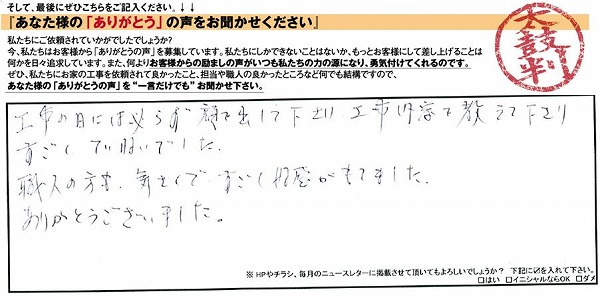 そして、最後にぜひこちらをご記入ください。↓↓
『あなた様の「ありがとう」の声をお聞かせください』
私たちにご依頼されていかがでしたでしょうか?
今、私たちはお客様から「ありがとうの声」を募集しています。私たちにしかできないことはないか、もっとお客様にして差し上げることは
何かを日々追求しています。また、何よりお客様からの励ましの声がいつも私たちの力の源になり、勇気付けてくれるのです。
ぜひ、私たちにお家の工事を依頼されて良かったこと、担当や職人の良かったところなど何でも結構ですので、
あなた様の「ありがとうの声」を“一言だけでも”お聞かせ下さい。
太鼓判
工事の日には必ず顔を出して下さり、工事内容を教えて下さり
すごくてい寧いでした。
職人の方も、気さくで すごく好感がもてました。
ありがとうございました。
※HPやチラシ、毎月のニュースレターに掲載させて頂いてもよろしいでしょうか? 下記に☑を入れて下さい。
□はい □イニシャルならOK □ダメ